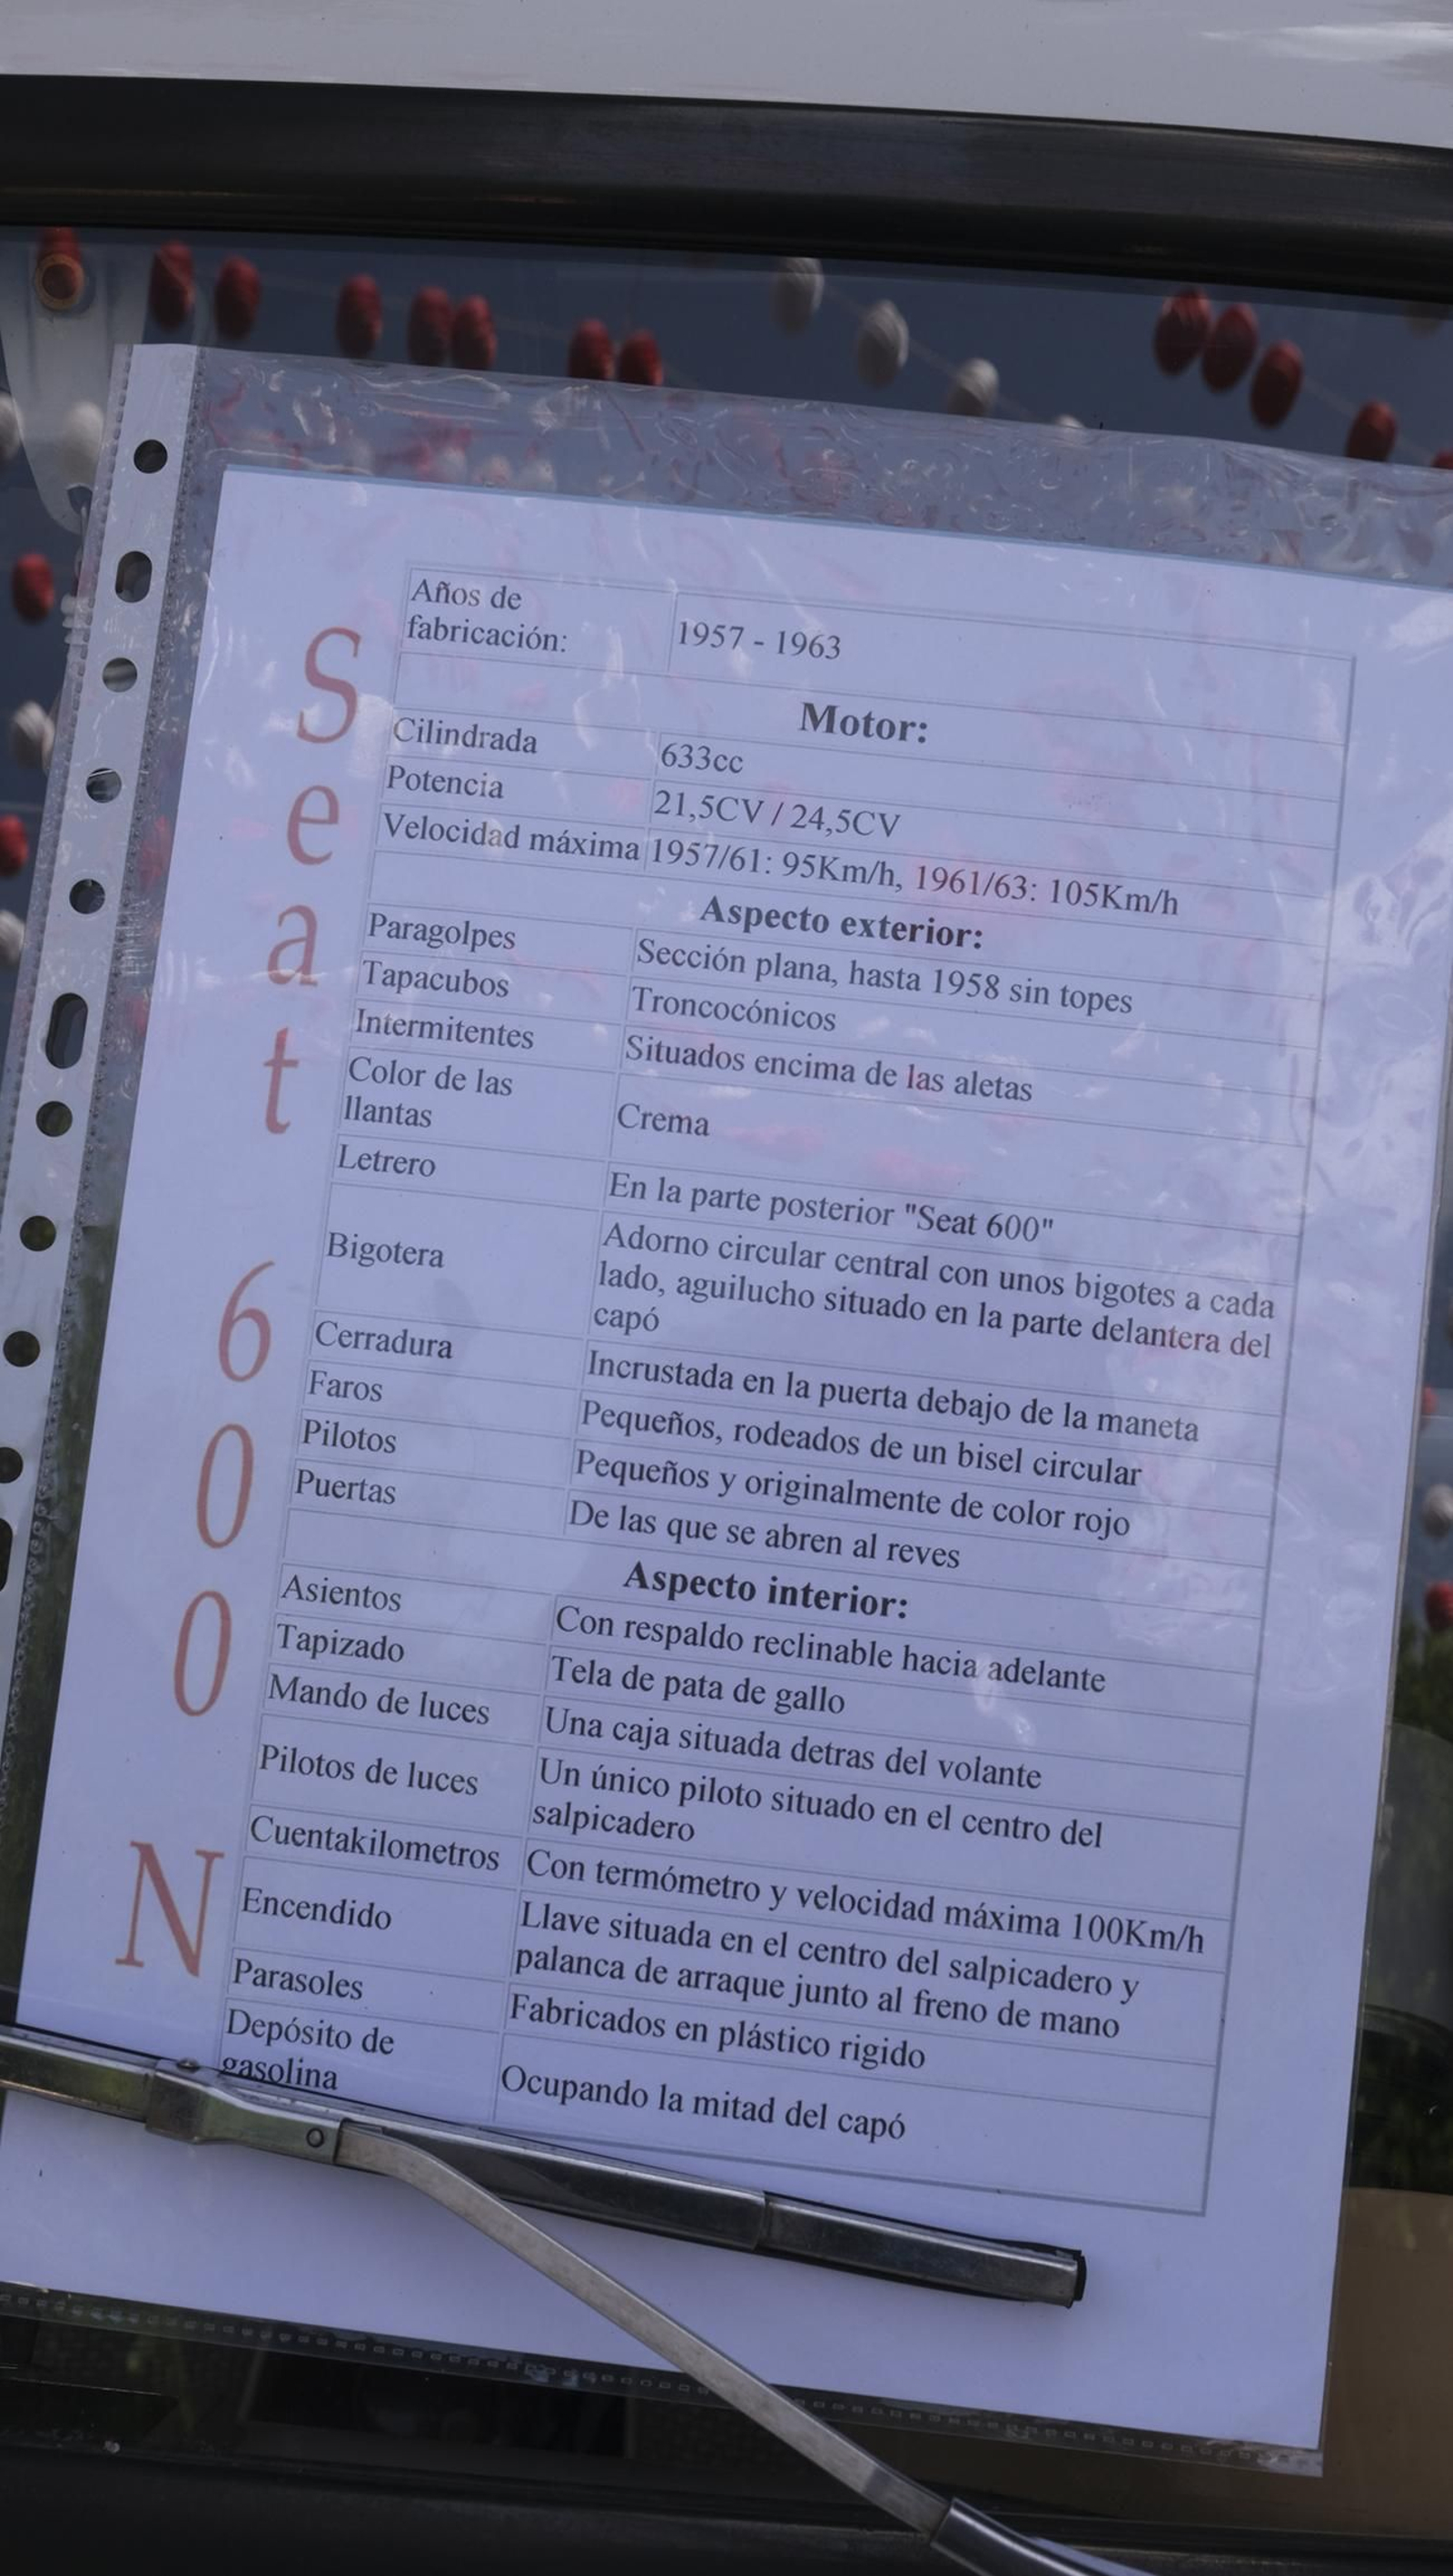 Seat 600 N
Años de
fabricación:
1957 - 1963
Motor:
Cilindrada 633cc
Potencia 21,5CV / 24,5CV
Velocidad máxima 1957/61: 95Km/h, 1961/63: 105Km/h
Aspecto exterior:
Paragolpes Sección plana, hasta 1958 sin topes
Tapacubos Troncocónicos
Intermitentes Situados encima de las aletas
Color de las
llantas
Crema
Letrero En la parte posterior "Seat 600"
Bigotera
Adorno circular central con unos bigotes a cada
lado, aguilucho situado en la parte delantera del
capó
Cerradura Incrustada en la puerta debajo de la maneta
Faros Pequeños, rodeados de un bisel circular
Pilotos Pequeños y originalmente de color rojo
Puertas De las que se abren al reves
Aspecto interior:
Asientos Con respaldo reclinable hacia adelante
Tapizado Tela de pata de gallo
Mando de luces Una caja situada detras del volante
Pilotos de luces
Un único piloto situado en el centro del
salpicadero
Cuentakilometros Con termómetro y velocidad máxima 100Km/h
Encendido
Llave situada en el centro del salpicadero y
palanca de arraque junto al freno de mano
Parasoles Fabricados en plástico rigido
Depósito de
gasolina
Ocupando la mitad del capó